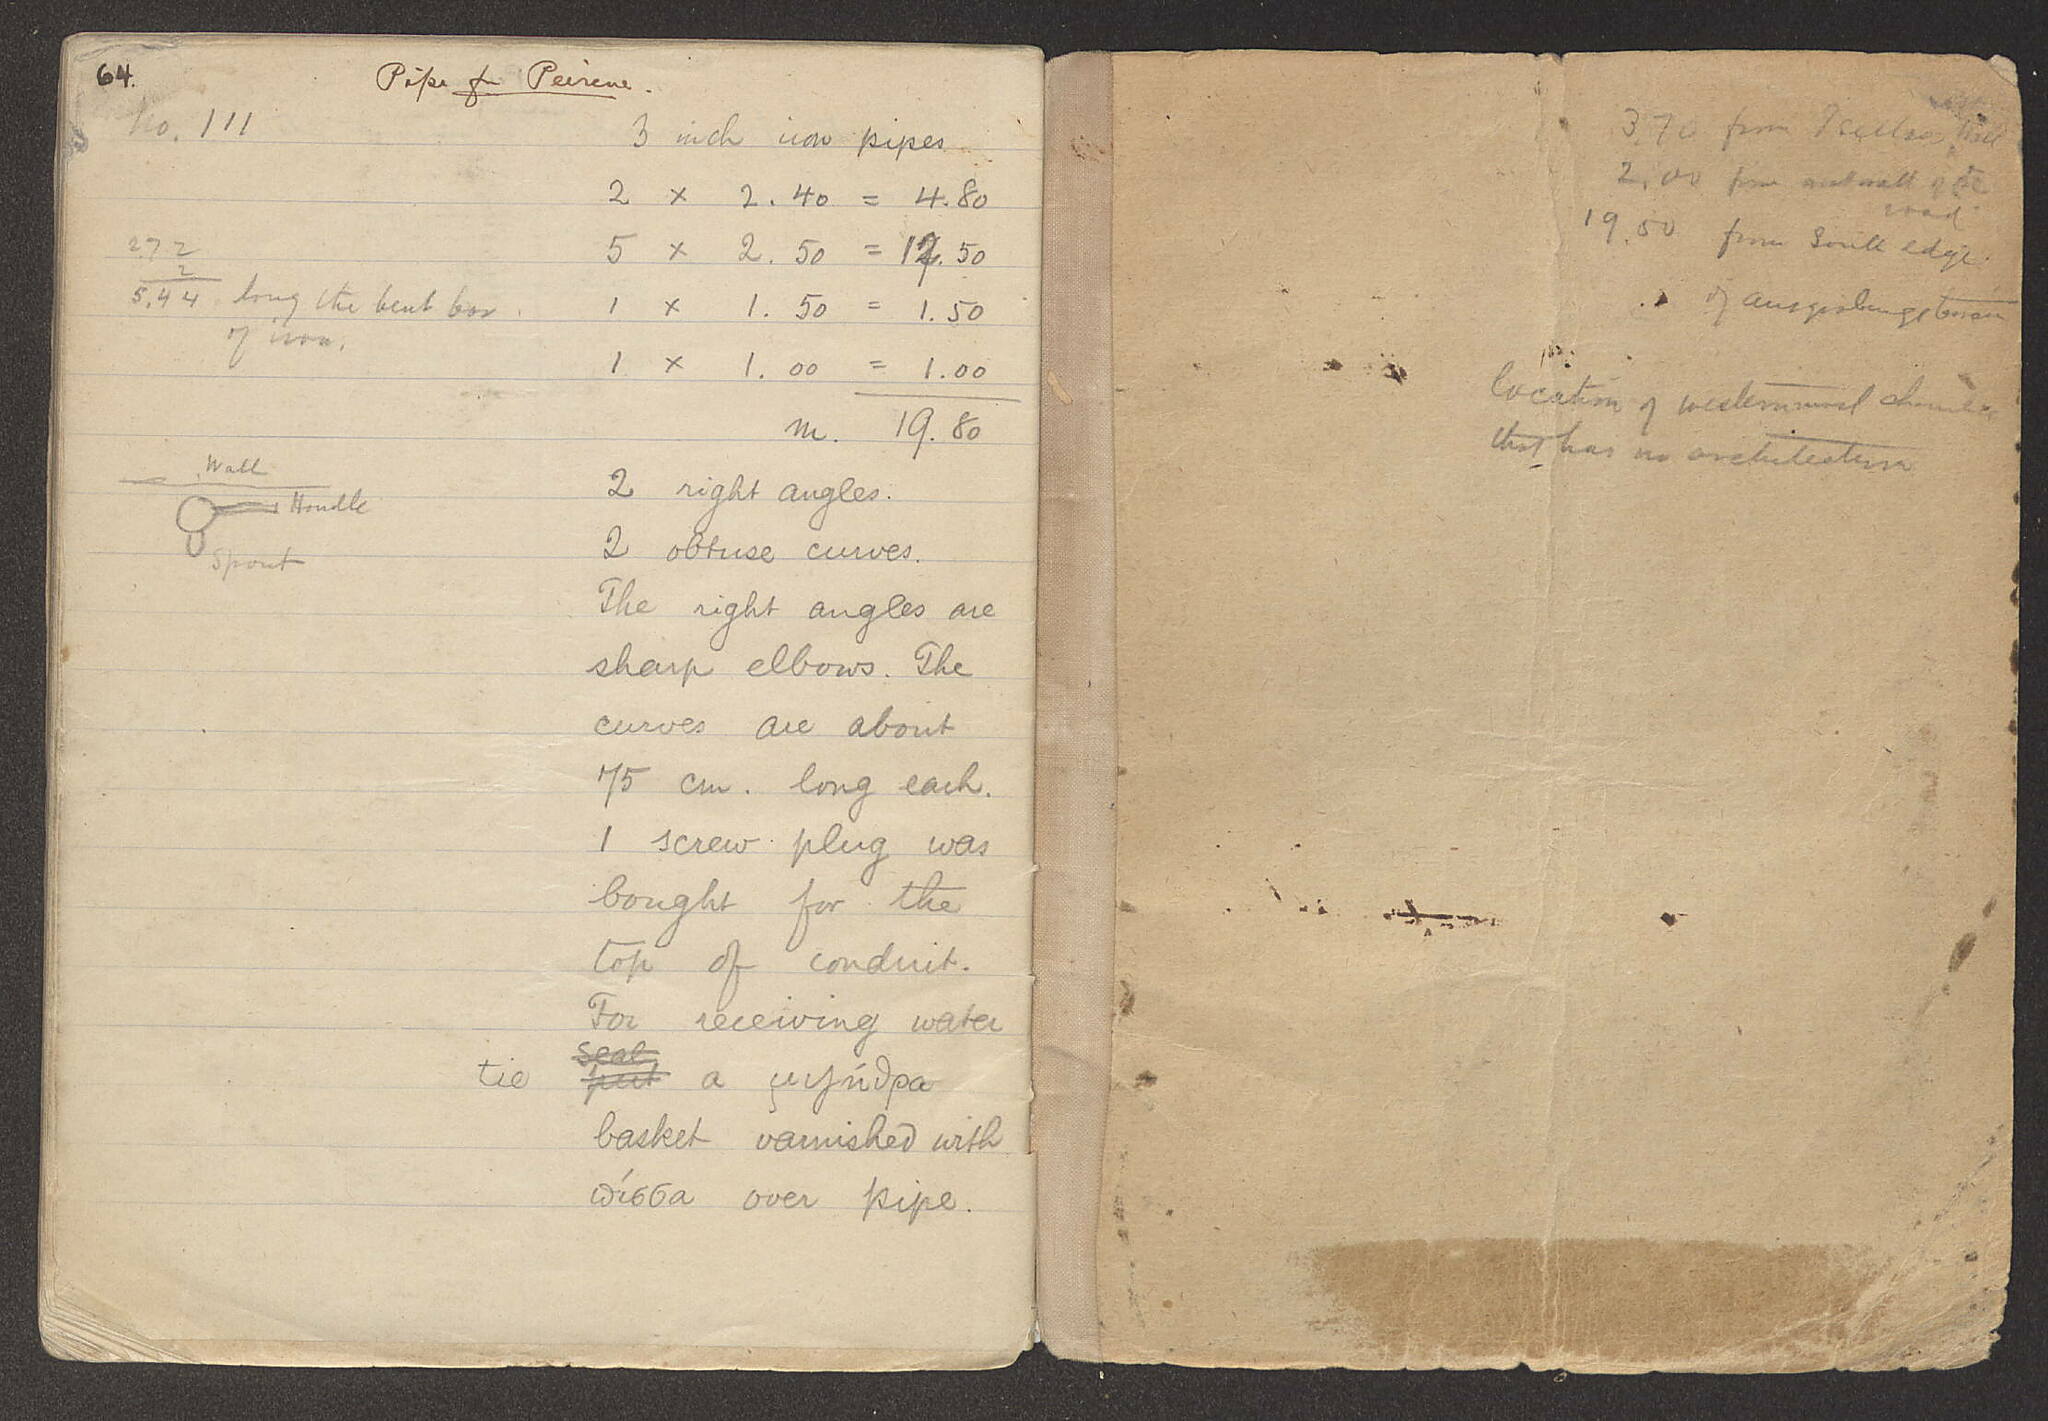 64.
Pipe for Peirene.
No. 111
3 inch iron pipes
2 × 2.40 = 4.80
5 × 2.50 = 12.50
1 × 1.50 = 1.50
1 × 1.00 = 1.00
m. 19.80
2.72
2
5.44 long the bent bar
of iron.
Wall
Handle
Spout
2 right angles.
2 obtuse curves.
The right angles are
sharp elbows. The
curves are about
75 cm. long each.
1 screw plug was
bought for the
top of conduit.
For receiving water
seal
tie put a
basket varnished with
πίσσα over pipe.
3.70 from
2.00 from wall of the
road
19.50 from South edge
of
location of westernmost chamber
that has no architecture